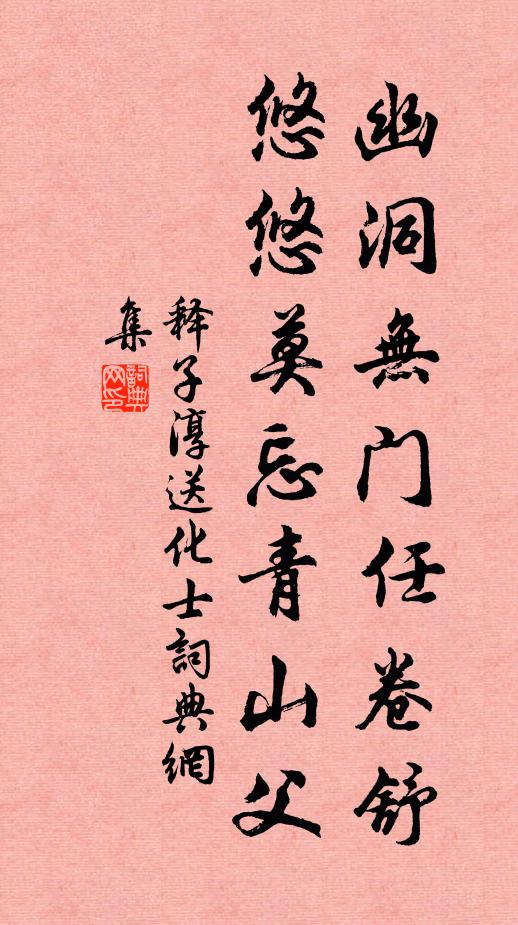 幽洞無门任卷舒
悠悠莫忘青山父
释子淳送化士詞典網
集
詞典网印